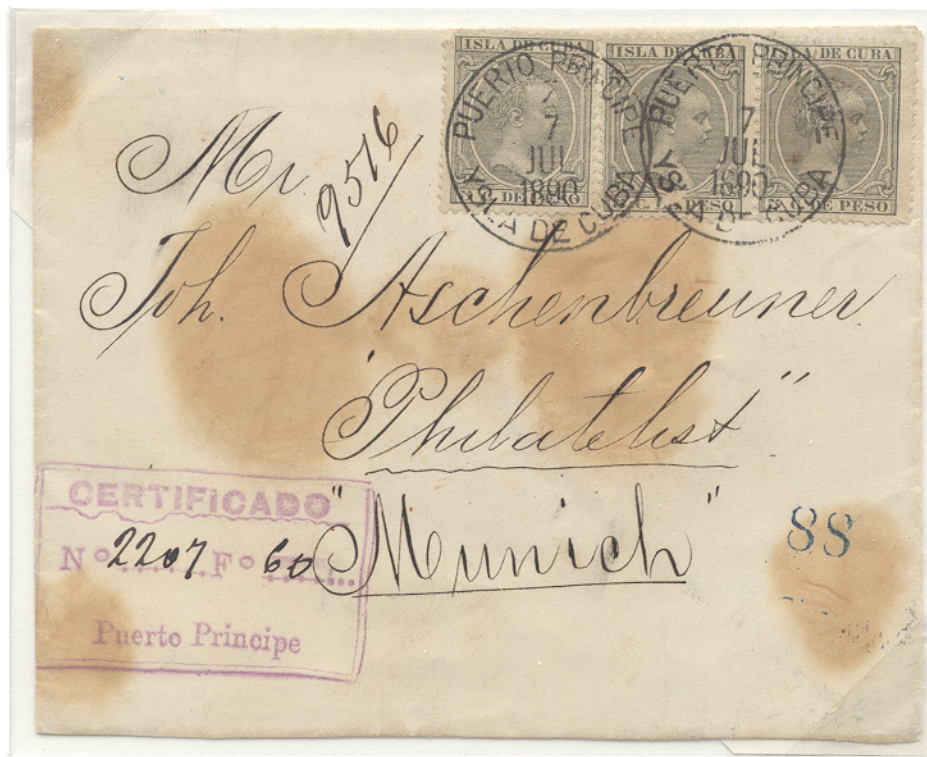 ISLA DE CUBA ISLA DE CUBA ISLA DE CUBA
DE PESO C. PESO DE PESO
PUERTO PRINCIPE
7
JUL
1890
ISLA DE CUBA
PUERTO PRINCIPE
7
JUL
1890
ISLA DE CUBA
Mr.
9516
Joh. Aschenbreuner
"Philatelist"
"Munich"
CERTIFICADO
Nº 2207 Fº 60
Puerto Principe
88